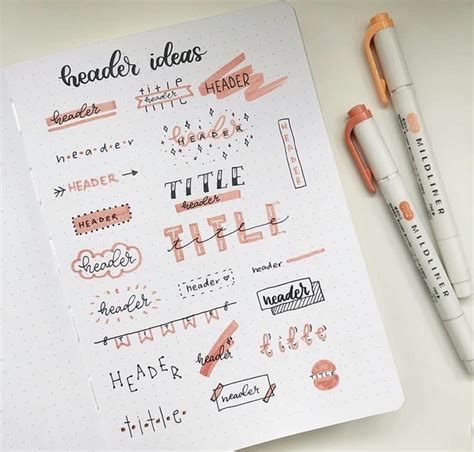 header ideas
header
title
header
HEADER
header
header
HEADER
HEADER
HEADER
TITLE
header
HEADER
TITLE
title
header
header ♡
header
header
header
HEADER
header
title
title
header
TITLE
MILDLINER
MILDLINER